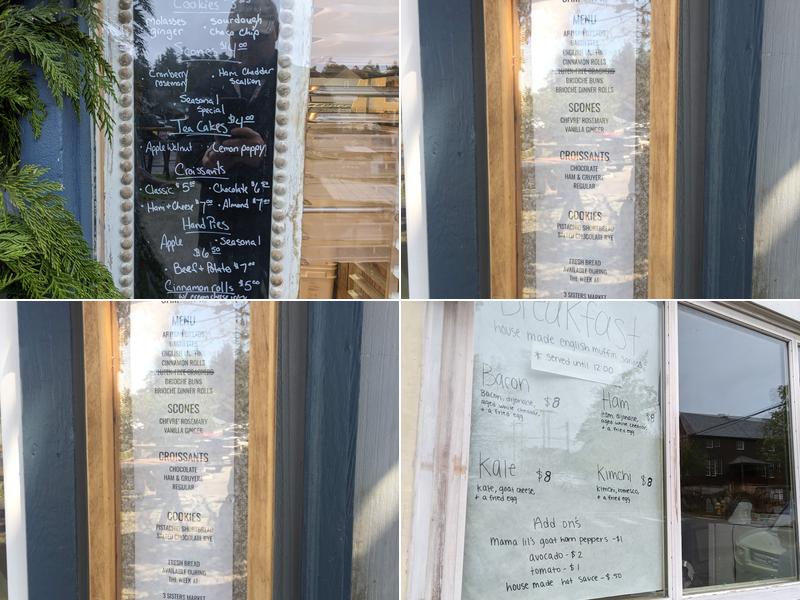 Cookies
molasses ginger
sourdough choco chip
Scones $4.00
Cranberry rosemary
• Ham Cheddar scallion
Seasonal Special
Tea Cakes $4.00
• Apple Walnut
• Lemon poppy
Croissants
• Classic $5.00
• Chocolate $6
• Ham + Cheese $7.00
• Almond $7.00
Hand Pies
Apple
• Seasonal
$6.50
• Beef + Potato $7.00
Cinnamon rolls $5.00
w/ cream cheese icing
MENU
BAGUETTES
ENGLISH MUFFIN
CINNAMON ROLLS
GLUTEN-FREE CRACKERS
BRIOCHE BUNS
BRIOCHE DINNER ROLLS
SCONES
CHEVRE' ROSEMARY
VANILLA GINGER
CROISSANTS
CHOCOLATE
HAM & GRUYERE
REGULAR
COOKIES
PISTACHIO SHORTBREAD
SALTED CHOCOLATE RYE
FRESH BREAD
AVAILABLE DURING
THE WEEK AT
3 SISTERS MARKET
MENU
ENGLISH MUFFIN
CINNAMON ROLLS
GLUTEN-FREE CRACKERS
BRIOCHE BUNS
BRIOCHE DINNER ROLLS
SCONES
CHEVRE' ROSEMARY
VANILLA GINGER
CROISSANTS
CHOCOLATE
HAM & GRUYERE
REGULAR
COOKIES
PISTACHIO SHORTBREAD
SALTED CHOCOLATE RYE
FRESH BREAD
AVAILABLE DURING
THE WEEK AT
3 SISTERS MARKET
Breakfast
house made english muffin
* served until 12:00
Bacon $8
Bacon, dijonaise,
aged white cheddar,
+ a fried egg
Ham $8
Ham, dijonaise,
aged white cheddar,
+ a fried egg
Kale $8
kale, goat cheese,
+ a fried egg
Kimchi $8
kimchi, romesco,
+ a fried egg
Add on's
mama lil's goat horn peppers - $1
avocado - $2
tomato - $1
house made hot sauce - $.50